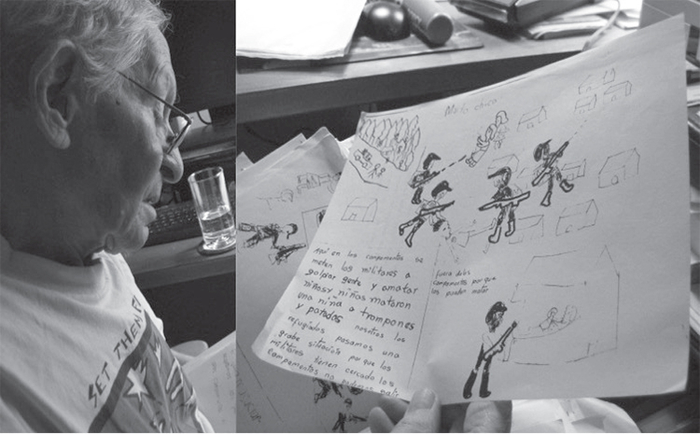 SET THEM
Aquí en los campamentos se
meten los militares a
golpiar gente y amatar
niños y niñas mataron
una niña a trompones
y patadas nosotros los
refugiados pasamos una
grabe situasion porque los
militares tienen cercado los
campamentos no
fuera delos
campamentos porque
los pueden matar